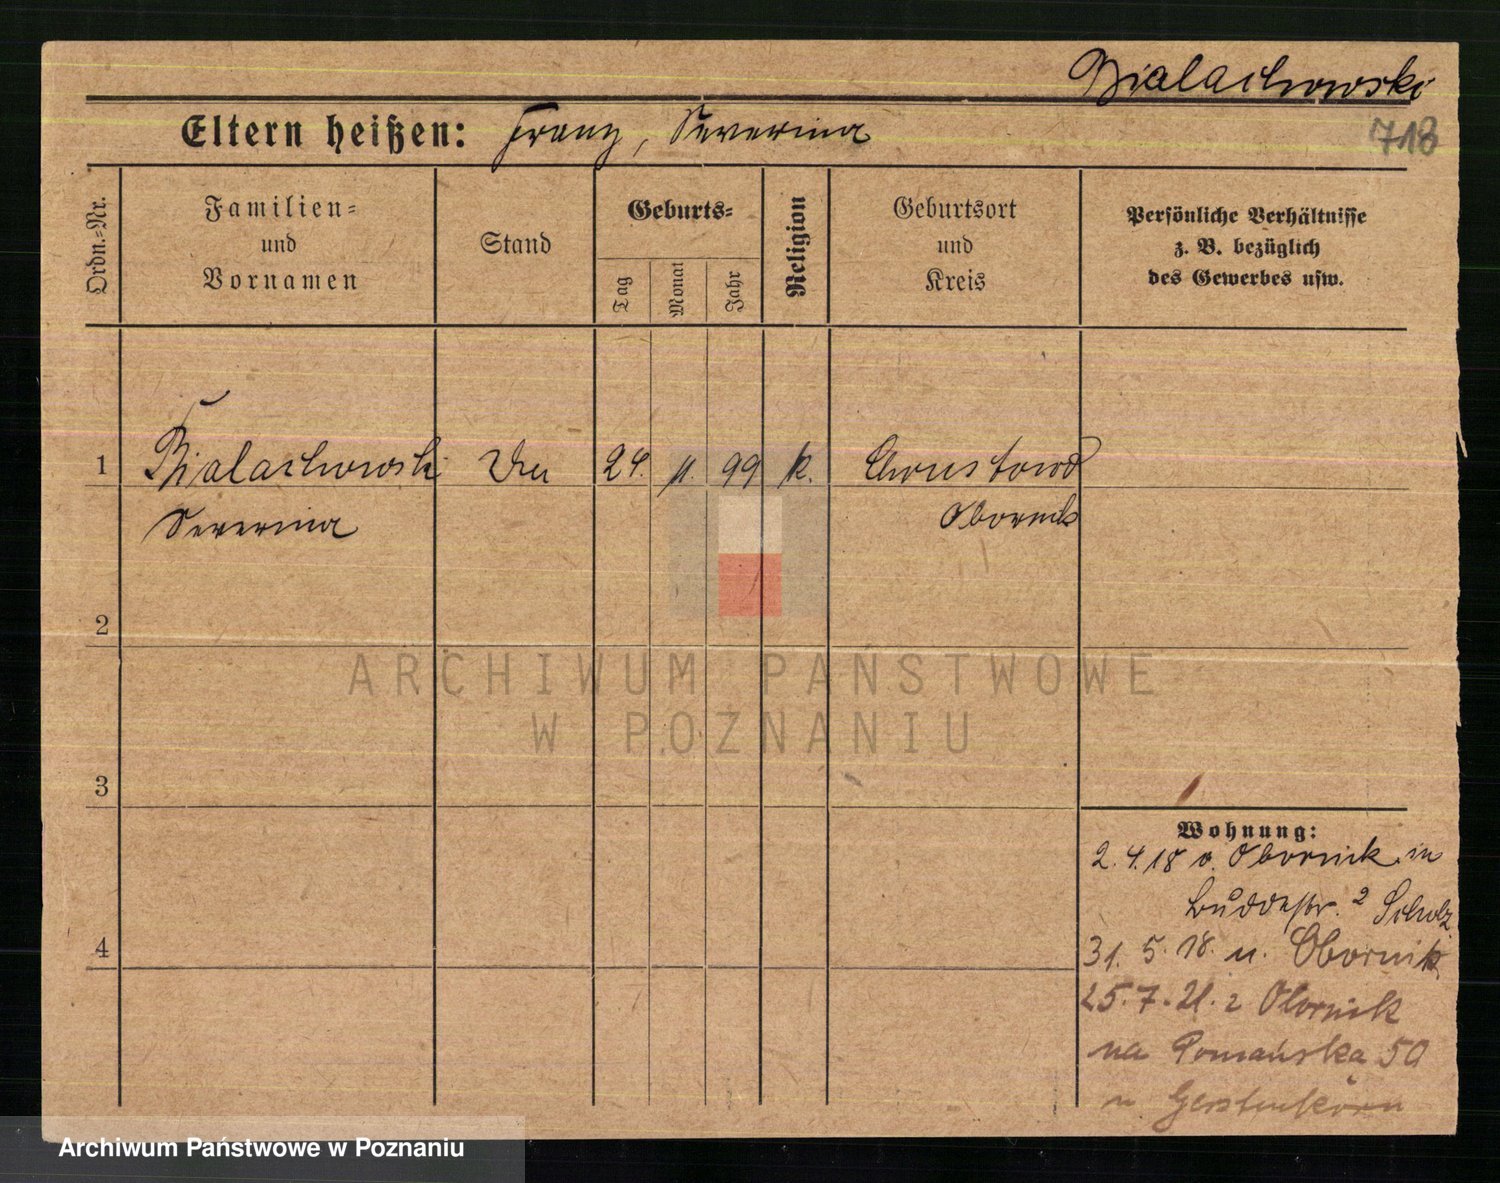 Bialachowski
Eltern heißen: Franz, Severina
718
Ordn.=Nr.
Familien=
und
Vornamen
Stand
Geburts=
Tag
Monat
Jahr
Religion
Geburtsort
und
Kreis
Persönliche Verhältnisse
z. B. bezüglich
des Gewerbes usw.
1
Bialachowski
24. 11. 99
k.
Severina
Obornik
2
3
4
Wohnung:
2.4.18 v. Obornik in
Buddestr. 2 Scholz
31. 5. 18. n. Obornik
25.7.21. z Obornik
na 50
u Gerstenkorn
ARCHIWUM PAŃSTWOWE
W POZNANIU
Archiwum Państwowe w Poznaniu